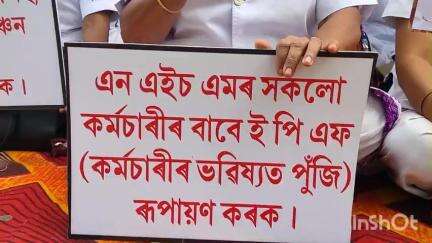 ঞ্চন
ক।
এন এইচ এমৰ সকলো
কৰ্মচাৰীৰ বাবে ই পি এফ
(কৰ্মচাৰীৰ ভৱিষ্যত পুঁজি)
ৰূপায়ণ কৰক।
InShOt